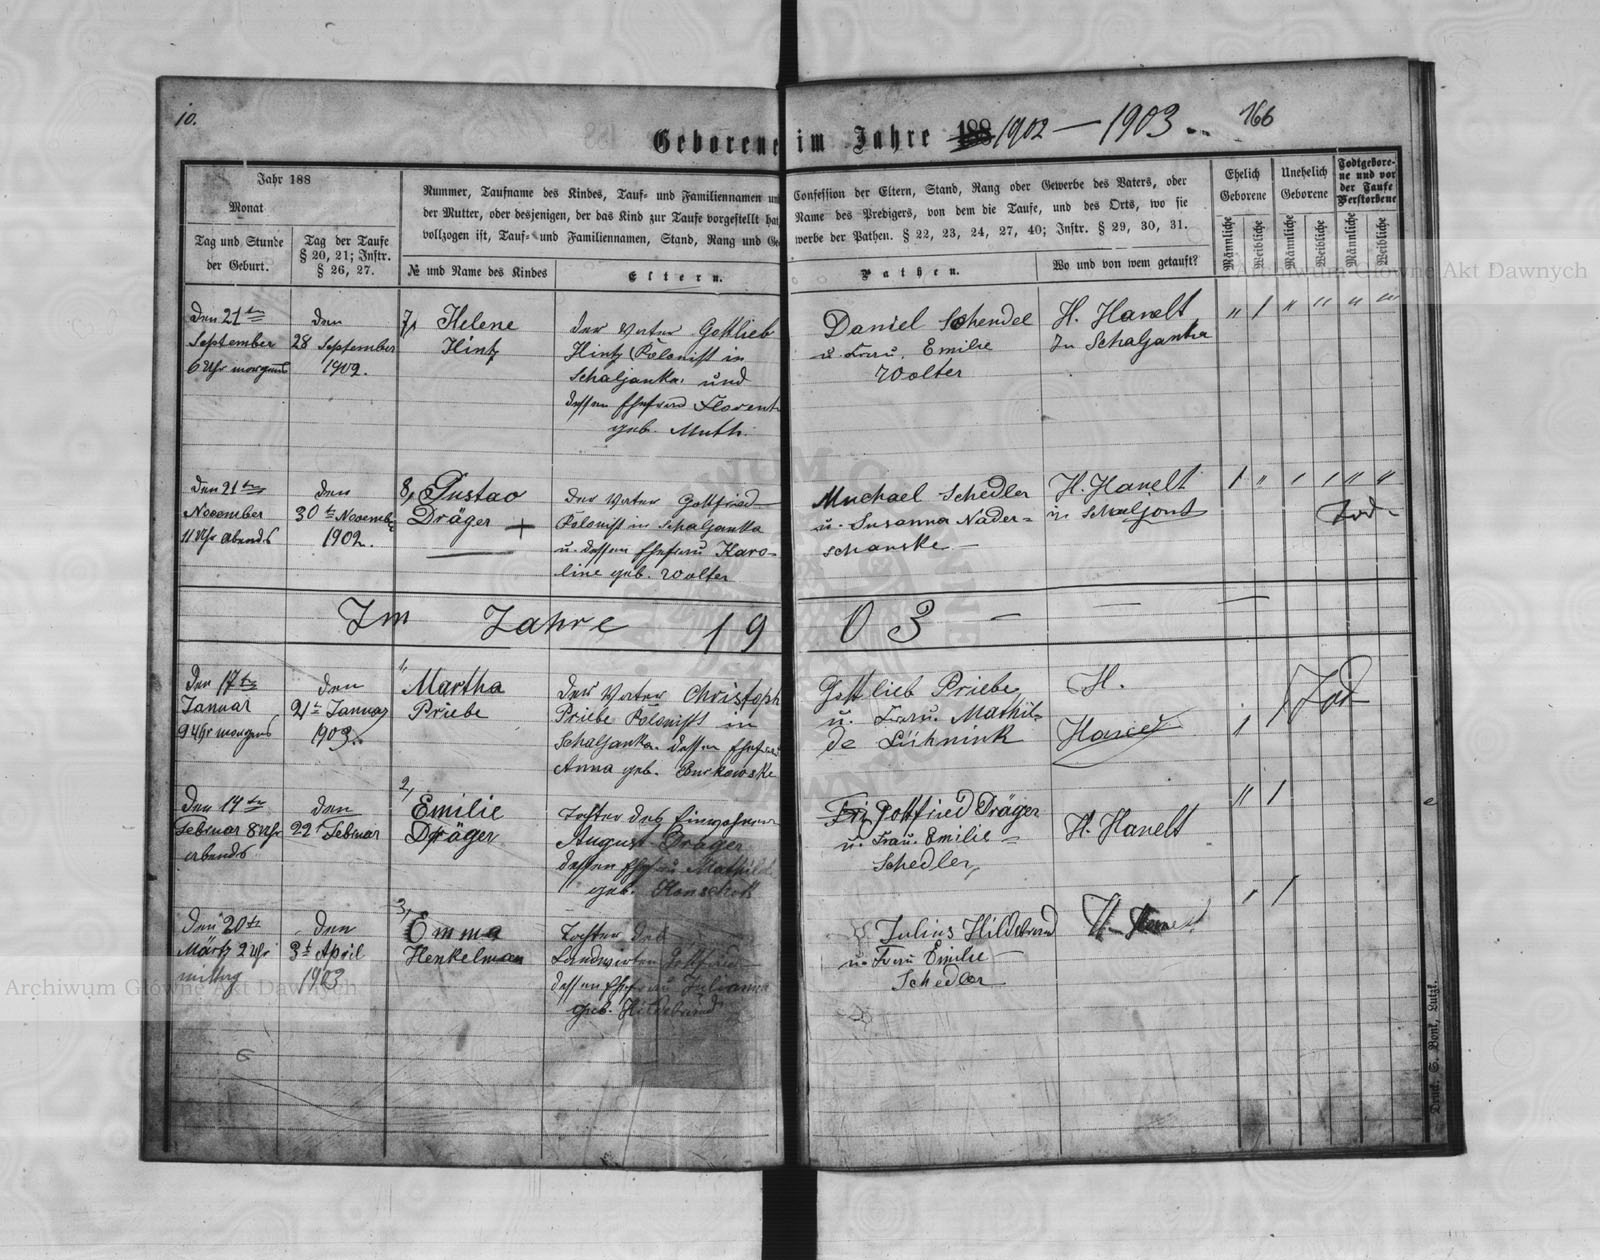 10.
166
Geborene im Jahre 188 1902 — 1903.
Jahr 188
Monat
Tag und Stunde
der Geburt.
Tag der Taufe
§ 20, 21; Instr.
§ 26, 27.
Nummer, Taufname des Kindes, Tauf- und Familiennamen un
der Mutter, oder desjenigen, der das Kind zur Taufe vorgestellt hat,
vollzogen ist, Tauf- und Familiennamen, Stand, Rang und Ge
№ und Name des Kindes
Eltern.
Confession der Eltern, Stand, Rang oder Gewerbe des Vaters, oder
Name des Predigers, von dem die Taufe, und des Orts, wo sie
werbe der Pathen. § 22, 23, 24, 27, 40; Instr. § 29, 30, 31.
Pathen.
Wo und von wem getauft?
Ehelich
Geborene
Unehelich
Geborene
Todtgebore-
ne und vor
der Taufe
Verstorbene
Männliche
Weibliche
Männliche
Weibliche
Männliche
Weibliche
Den 21ten
September
6 Uhr morgens
den
28 September
1902.
7, Helene
Hintz
Der Vater Gottlieb
Hintz Kolonist in
Schaljanka und
dessen Ehefrau Florent
geb. Muth.
Daniel Schendel
u. Frau. Emilie
Wolter
H. Hanelt
In Schaljanka
" / " " " "
Den 21ten
November
11 Uhr abends
den
30te Novemb
1902.
8, Gustav
Dräger +
Der Vater Gottfried
Kolonist in Schaljanka
u. dessen Ehefrau Karo-
line geb. Wolter
Muchael Schedler
u. Susanna Nader-
schanske
H. Hanelt
in
/ " / / " "
Tod
Im Jahre 1903 —
Den 17te
Januar
9 Uhr morgens
den
21te Januar
1903.
1,
Martha
Priebe
Der Vater Christoph
Priebe Kolonist in
Schaljanka dessen Ehefrau
Anna geb. Burkowske
Gottlieb Priebe
u. Frau. Mathil-
de Lühnink
H.
Hanelt
/
Tod
Den 14te
Februar 8 Uhr
abends
den
22te Februar
2,
Emilie
Dräger
Tochter des Einwohner
August Dräger
dessen Ehefrau Mathild
geb.
Gottfried Dräger
u. Frau. Emilie
Schedler
H. Hanelt
" /
Den 20te
März 2 Uhr
mittag
den
3t April
1903
3,
Emma
Henkelman
Tochter des
Landwirten Gottfried
dessen Ehefrau Julianna
geb. Hildebrand
Julius Hildebrand
u. Frau Emilie
Schedler
H. Hanelt
/ /
Druck. S. Bonk, Lutzk.
Archiwum Główne Akt Dawnych
Archiwum Główne Akt Dawnych